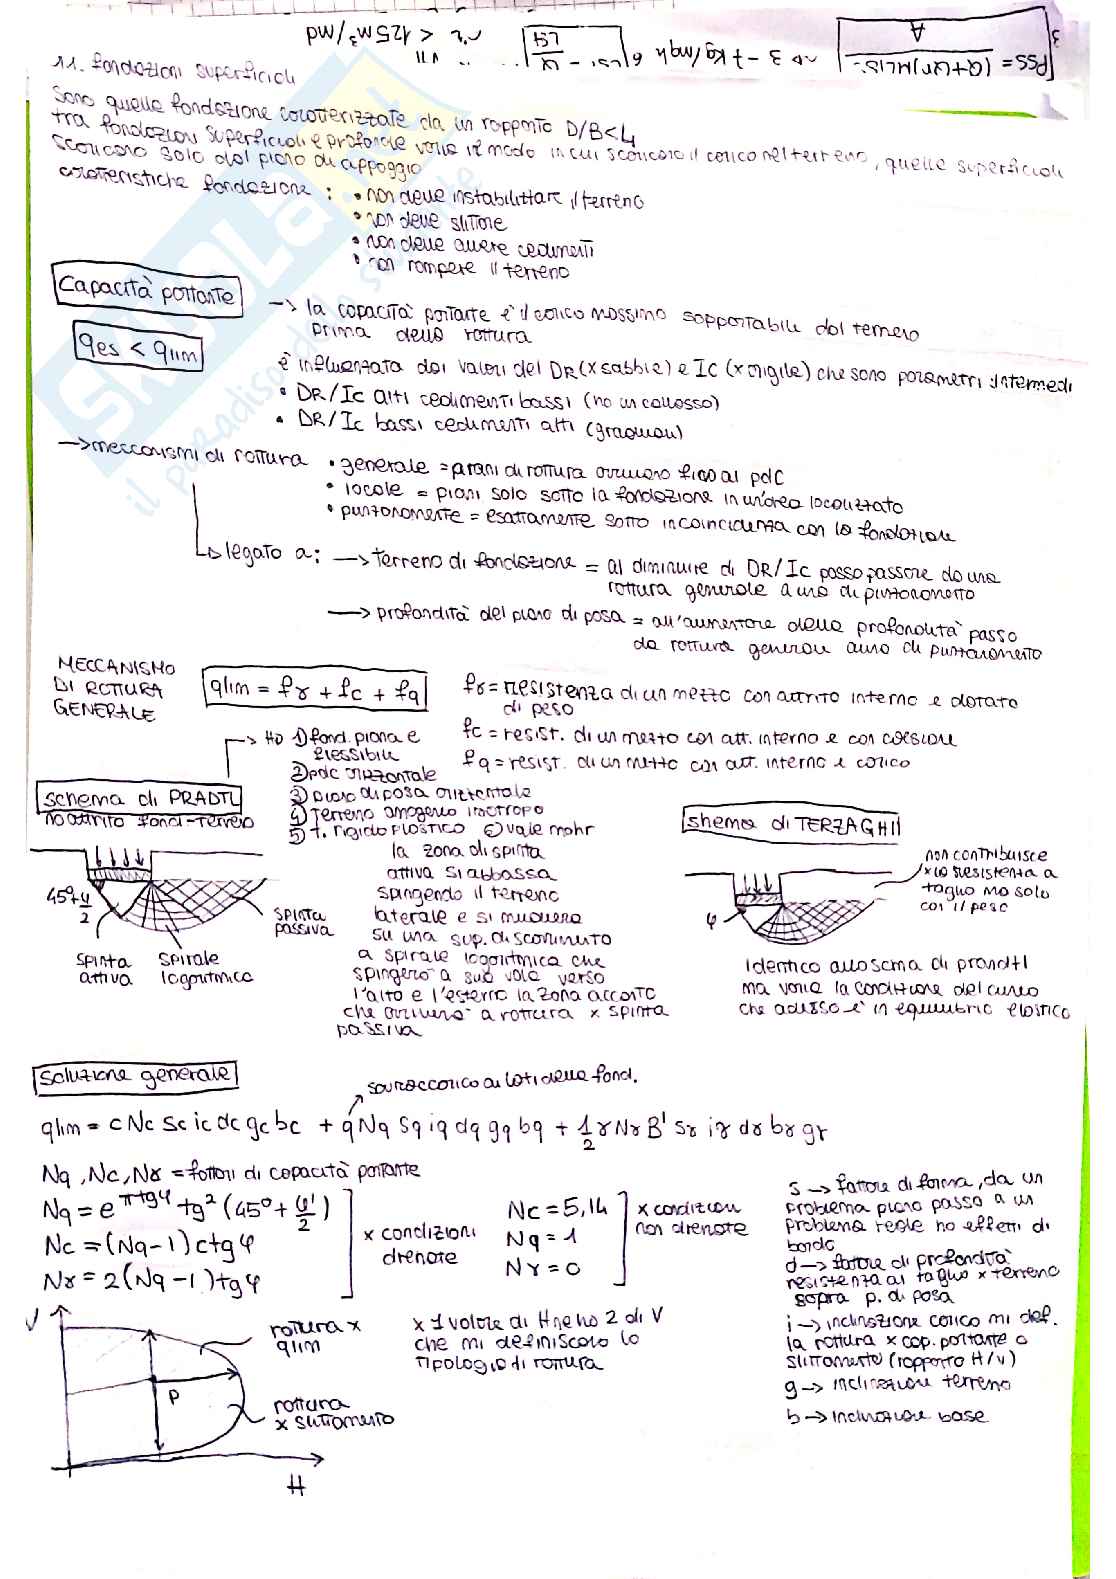 PSS = (Q+Qr)MLSS / A → 3 - 7 kg/mqh
< 125 m³/md
11. fondazioni superficiali
Sono quelle fondazione caratterizzate da un rapporto D/B<4
tra fondazioni superficiali e profonde varia il modo in cui scaricano il carico nel terreno, quelle superficiali
scaricano solo dal piano di appoggio
caratteristiche fondazione : • non deve instabilittare il terreno
• non deve slittare
• non deve avere cedimenti
• non rompere il terreno
Capacità portante
→ la capacità portante è il carico massimo sopportabile dal terreno
prima della rottura
qes < qlim
è influenzata dai valori del DR (x sabbie) e IC (x argille) che sono parametri intermedi
• DR/IC alti cedimenti bassi (no un collasso)
• DR/IC bassi cedimenti alti (graduali)
→ meccanismi di rottura • generale = piani di rottura arrivano fino al pdc
• locale = piani solo sotto la fondazione in un'area localizzata
• punzonamento = esattamente sotto in coincidenza con la fondazione
↳ legato a: → terreno di fondazione = al diminuire di DR/IC posso passare da una
rottura generale a una di punzonamento
→ profondità del piano di posa = all'aumentare della profondità passo
da rottura generale a uno di punzonamento
MECCANISMO
DI ROTTURA
GENERALE
qlim = fγ + fc + fq
fγ = resistenza di un mezzo con attrito interno e dotato
di peso
fc = resist. di un mezzo con att. interno e con coesione
fq = resist. di un mezzo con att. interno e carico
→ HP 1) fond. piana e
flessibile
2) pdc orizzontale
3) piano di posa orizzontale
4) terreno omogeneo isotropo
5) t. rigido plastico 6) vale mohr
schema di PRADTL
no attrito fond-terreno
45°+φ/2
spinta
attiva
spirale
logaritmica
spinta
passiva
la zona di spinta
attiva si abbassa
spingendo il terreno
laterale e si muovera
su una sup. di scorrimento
a spirale logaritmica che
spingerà a sua volta verso
l'alto e l'esterno la zona accanto
che arriverà a rottura x spinta
passiva
shema di TERZAGHII
non contribuisce
x la resistenza a
taglio ma solo
con il peso
φ
identico allo scma di prandtl
ma varia la condizione del cuneo
che adesso è in equilibrio elastico
soluzione generale
sovraccarico ai lati della fond.
qlim = cNc sc ic dc gc bc + qNq sq iq dq gq bq + 1/2 γ Nγ B' sγ iγ dγ bγ gγ
Nq, Nc, Nγ = fattori di capacità portante
Nq = e^πtgφ tg² (45° + φ'/2)
Nc = (Nq-1) ctgφ
Nγ = 2(Nq-1) tgφ
x condizioni
drenate
Nc = 5,14
Nq = 1
Nγ = 0
x condizioni
non drenate
s → fattore di forma, da un
problema piano passo a un
problema reale ho effetti di
bordo
d → fattore di profondità
resistenza al taglio x terreno
sopra p. di posa
i → inclinazione carico mi def.
la rottura x cap. portante o
slittamento (rapporto H/V)
g → inclinazione terreno
b → inclinazione base
V
rottura x
qlim
P
rottura
x slittamento
H
x 1 valore di H ne ho 2 di V
che mi definiscono la
tipologia di rottura
SKUOLA.net
il paradiso dello studente